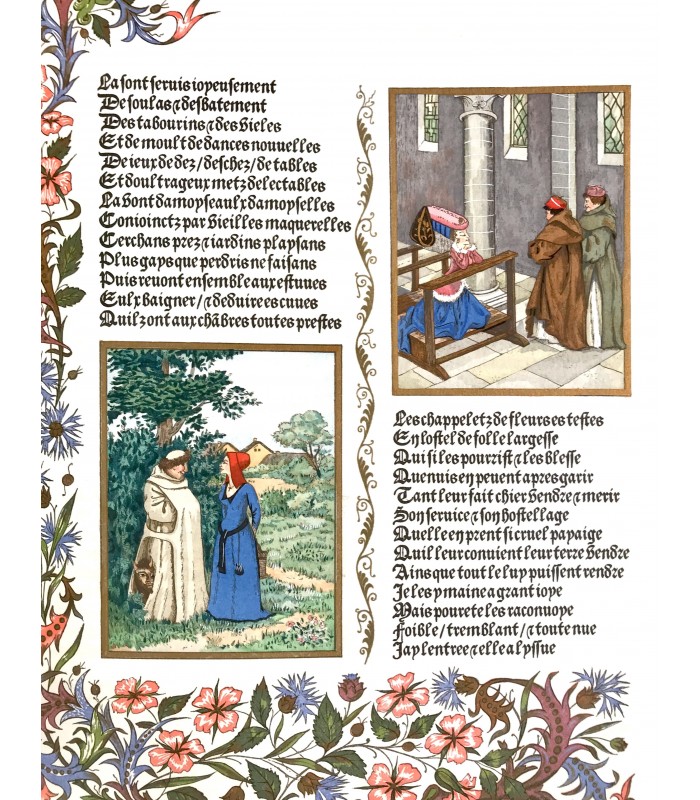 La sont seruis ioyeusement
De soulas & desbatement
Des tabourins & des vieles
Et de moult de dances nouuelles
De ieux de dez / deschez / de tables
Et doultrageux metz delectables
La vont damoyseaulx & damoyselles
Conioinctz par vieilles maquerelles
Cerchans prez & iardins playsans
Plus gays que perdris ne faisans
Puis reuont ensemble aux estuues
Eulx baigner / & deduire es cuues
Quilz ont aux chãbres toutes prestes
Les chappeletz de fleurs es testes
En lostel de folle largesse
Qui si les pourrist & les blesse
Quenuis en peuent apres garir
Tant leur fait chier vendre & merir
Son seruice & son hostellage
Quelle en prent si cruel payaige
Quil leur conuient leur terre vendre
Ains que tout le luy puissent rendre
Je les y maine a grant ioye
Mais pourete les raconuoye
Foible / tremblant / & toute nue
Jay lentree & elle a lyssue